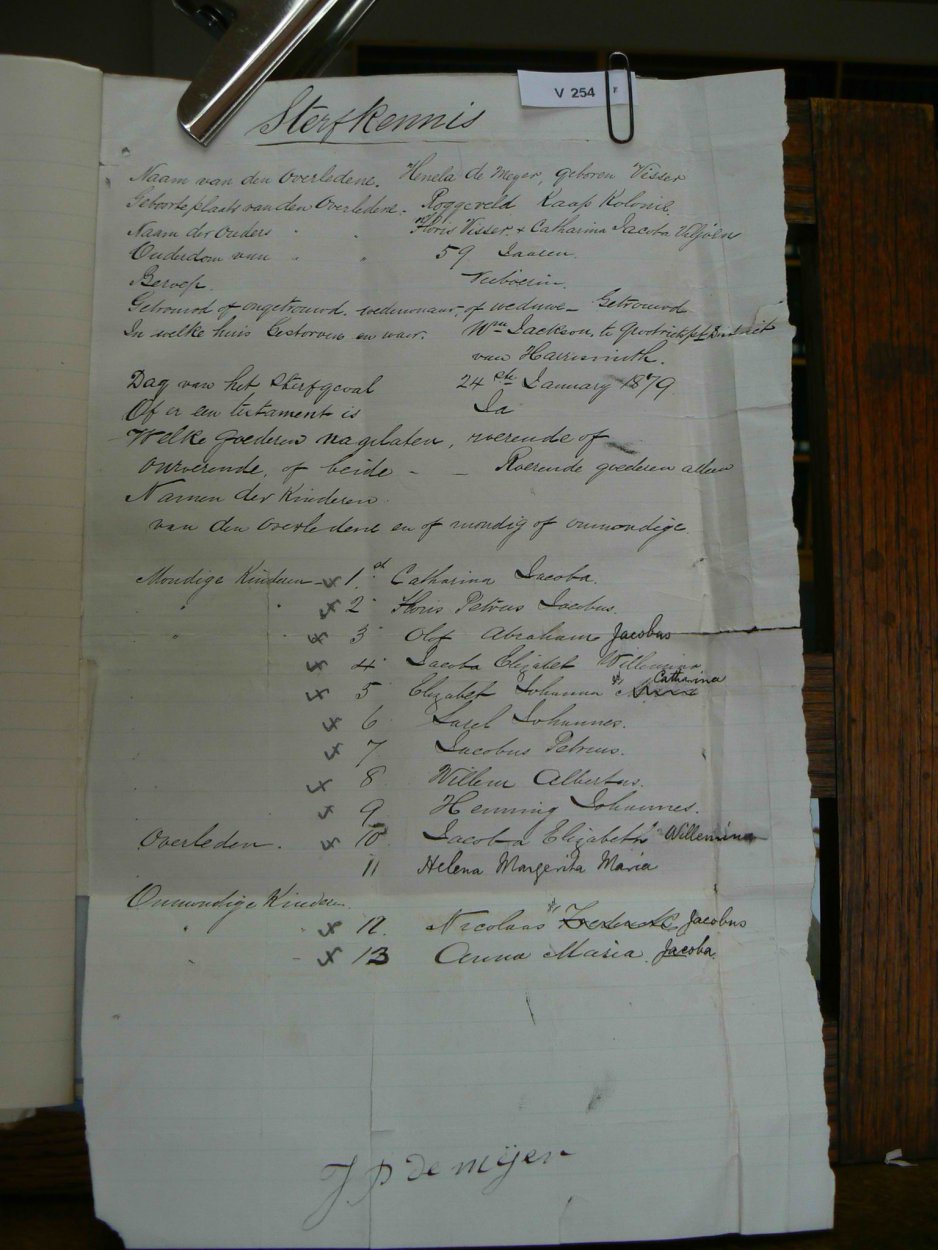 V 254
Sterfkennis
Naam van den Overledene. Henela de Meyer, geboren Visser
Geboorteplaats van den Overledene. Roggeveld Kaap Kolonie.
Naam der Ouders " " Floris Visser & Catharina Jacoba Viljoen
Ouderdom van " " 59 Jaaren.
Beroep. Veeboerin.
Getrouwd of ongetrouwd. wedewnaar, of weduwe – Getrouwd
In welke huis Gestorven en waar. Wm Jackson, te District
van Harrismith.
Dag van het Sterfgeval 24ste January 1879.
Of er een testament is Ja
Welke Goederen nagelaten, roerende of
onroerende, of beide - - Roerende goederen alleen
Namen der Kinderen
van den Overledene en of mondig of onmondige.
Mondige Kinderen 1st Catharina Jacoba.
" " 2 Floris Petrus Jacobus.
" " 3 Olof Abraham Jacobus
4 Jacoba Elizabet Willemina
5 Elizabet Johanna Catharina
6 Karel Johannes.
7 Jacobus Petrus.
8 Willem Albertus.
9 Henning Johannes.
Overleden. 10 Jacoba Elizabeth Willemina
11 Helena Margerita Maria
Onmondige Kinderen.
" 12. Nicolaas Frederick Jacobus
13 Anna Maria Jacoba
J P de meijer